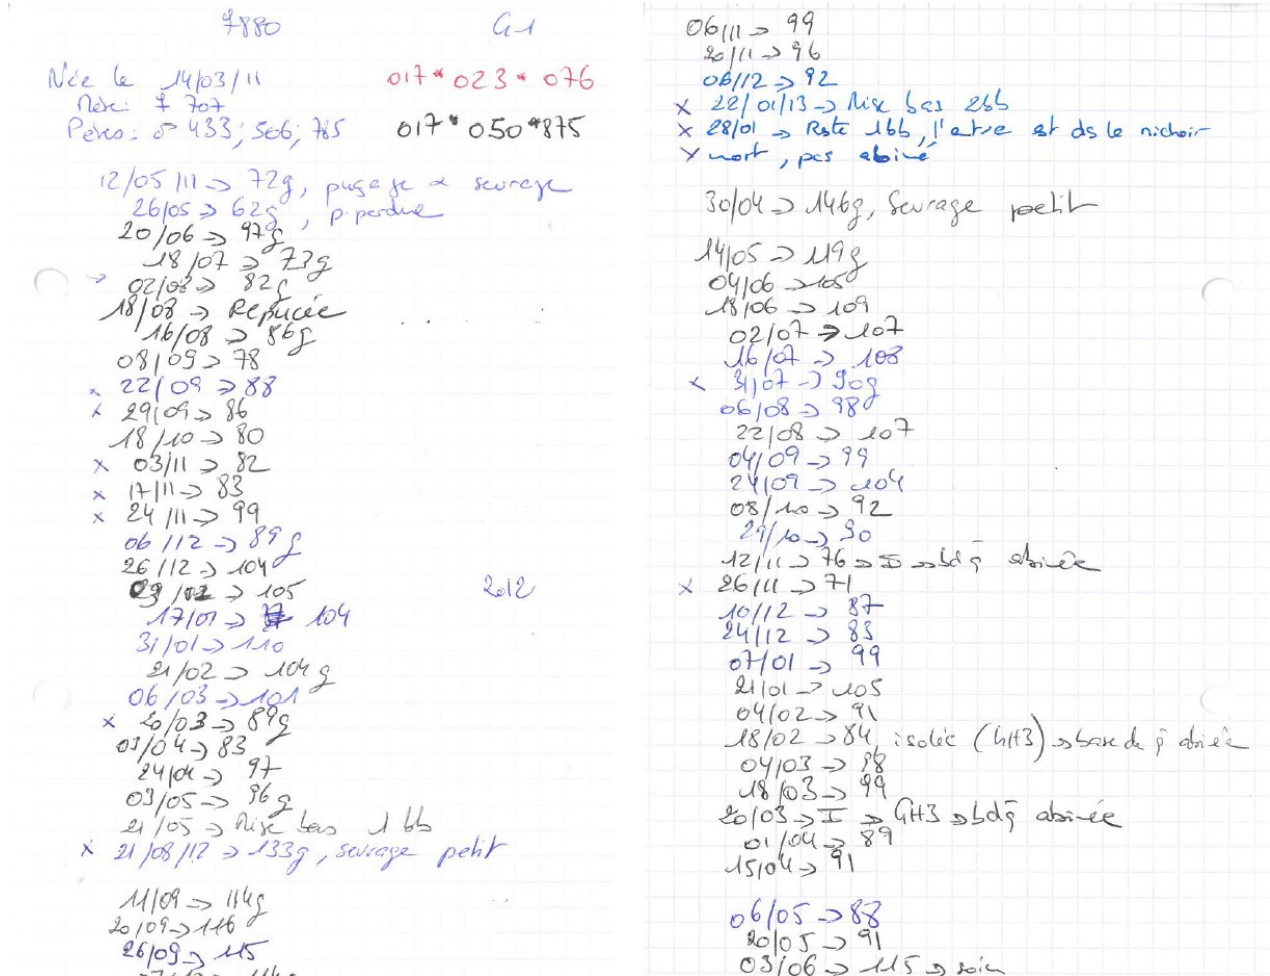 ♀880 GH1
Née le 14/03/11 017*023*076
Mère: ♀ 707
Pères: ♂ 433; 506; 785 017*050*875
12/05/11 → 72g, puçage & sevrage
26/05 → 62g, p. perdue
20/06 → 97g
18/07 → 73g
→ 02/08 → 82g
18/08 → Repucée
16/08 → 86g
08/09 → 78
x 22/09 → 88
x 29/09 → 86
18/10 → 80
x 03/11 → 82
x 17/11 → 83
x 24/11 → 99
06/12 → 89g
26/12 → 104
→ 105 2012
17/01 → 104
31/01 → 110
21/02 → 104g
06/03 → 101
x 20/03 → 89g
03/04 → 83
24/04 → 97
03/05 → 96g
21/05 → Mise bas 1 bb
x 21/08/12 → 133g, sevrage petit
11/09 → 114g
20/09 → 116
26/09 → 115
06/11 → 99
20/11 → 96
06/12 → 92
x 22/01/13 → Mise bas 2bb
x 28/01 → Reste 1bb, l'autre est ds le nichoir
x mort, pas abimé
30/04 → 146g, Sevrage petit
14/05 → 119g
04/06 → 105
18/06 → 109
02/07 → 107
16/07 → 108
x 31/07 → 90g
06/08 → 98
22/08 → 107
04/09 → 99
24/09 → 104
08/10 → 92
29/10 → 90
12/11 → 76 → I → bdq abimée
x 26/11 → 71
10/12 → 87
24/12 → 83
07/01 → 99
21/01 → 105
04/02 → 91
18/02 → 84, isolée (GH3) → base de q abimée
04/03 → 98
18/03 → 99
20/03 → I → GH3 → bdq abimée
01/04 → 89
15/04 → 91
06/05 → 88
20/05 → 91
03/06 → 115 → soin